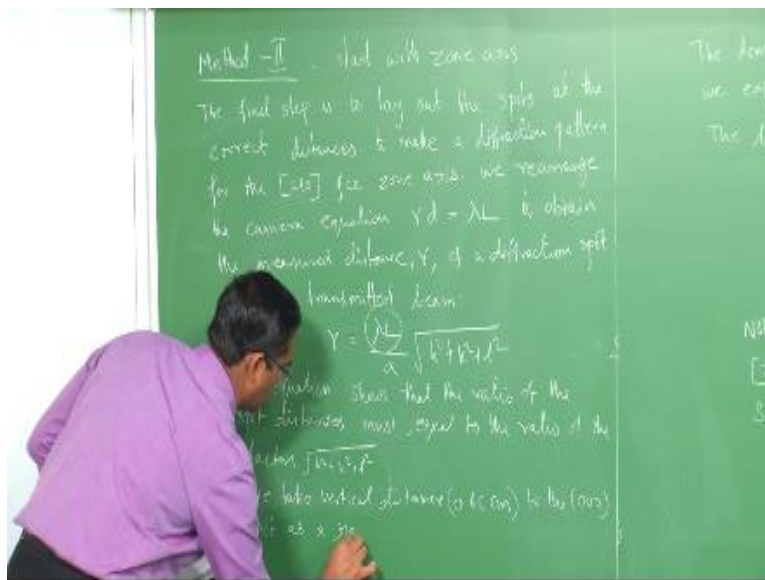 Method - II. start with zone axis
The final step is to lay out the spots at the
correct distances to make a diffraction pattern
for the [210] fcc zone axis. we rearrange
the camera equation rd = λL to obtain
the measured distance, r, of a diffraction spot
transmitted beam.
r = λL/a √h²+k²+l²
equation shows that the ratio of the
distances must equal to the ratio of the
factors √h²+k²+l²
take vertical distance ( cm) to the (002)
as a
The
we
The